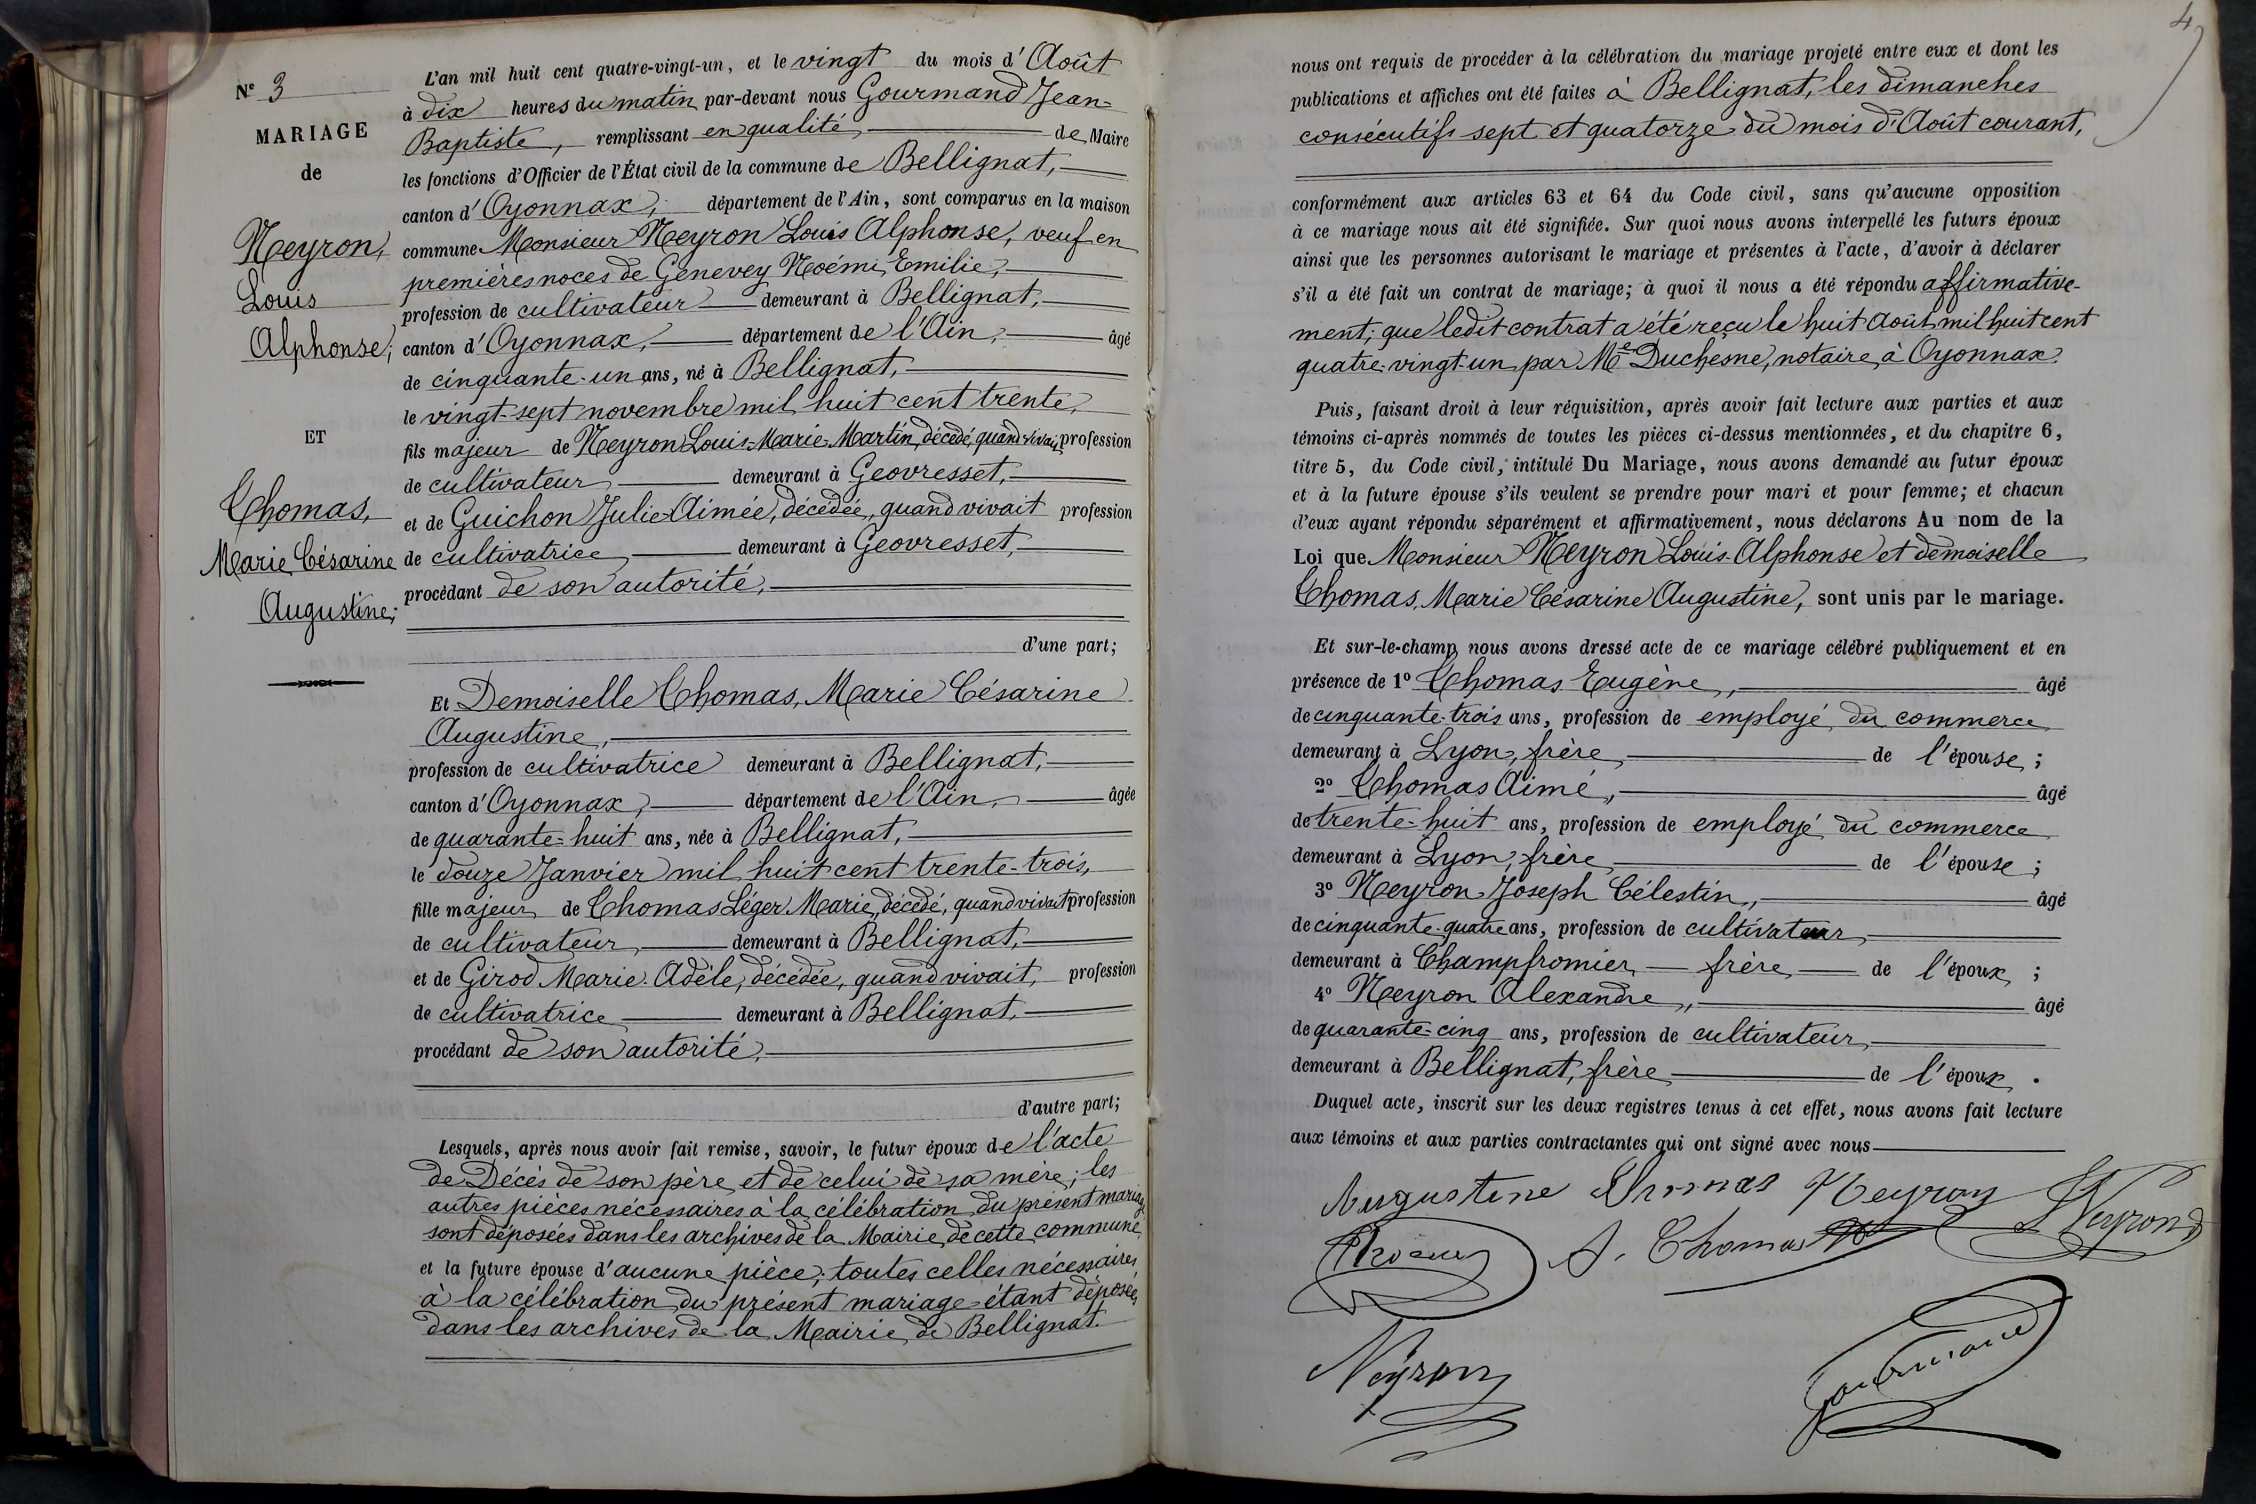 N° 3
MARIAGE
de
Neyron,
Louis
Alphonse;
ET
Thomas,
Marie Césarine
Augustine;
L'an mil huit cent quatre-vingt-un, et le vingt du mois d'Août
à dix heures du matin par-devant nous Gourmand Jean-
Baptiste, remplissant en qualité de Maire
les fonctions d'Officier de l'État civil de la commune de Bellignat,
canton d'Oyonnax, département de l'Ain, sont comparus en la maison
commune Monsieur Neyron Louis Alphonse, veuf en
premières noces de Genevey Noémi Emilie,
profession de cultivateur demeurant à Bellignat,
canton d'Oyonnax, département de l'Ain, âgé
de cinquante-un ans, né à Bellignat,
le vingt-sept novembre mil huit cent trente,
fils majeur de Neyron Louis-Marie-Martin, décédé, quand vivait profession
de cultivateur demeurant à Geovresset,
et de Guichon Julie-Aimée, décédée, quand vivait profession
de cultivatrice demeurant à Geovresset,
procédant de son autorité,
d'une part;
Et Demoiselle Thomas, Marie Césarine
Augustine,
profession de cultivatrice demeurant à Bellignat,
canton d'Oyonnax, département de l'Ain, âgée
de quarante-huit ans, née à Bellignat,
le douze Janvier mil huit cent trente-trois,
fille majeur de Thomas Léger Marie, décédé, quand vivait profession
de cultivateur, demeurant à Bellignat,
et de Girod Marie-Adèle, décédée, quand vivait, profession
de cultivatrice demeurant à Bellignat,
procédant de son autorité,
d'autre part;
Lesquels, après nous avoir fait remise, savoir, le futur époux de l'acte
de Décès de son père et de celui de sa mère; les
autres pièces nécessaires à la célébration du présent mariage
sont déposées dans les archives de la Mairie de cette commune
et la future épouse d'aucune pièce; toutes celles nécessaires
à la célébration du présent mariage étant déposées
dans les archives de la Mairie de Bellignat.
4
nous ont requis de procéder à la célébration du mariage projeté entre eux et dont les
publications et affiches ont été faites à Bellignat, les dimanches
consécutifs sept et quatorze du mois d'Août courant,
conformément aux articles 63 et 64 du Code civil, sans qu'aucune opposition
à ce mariage nous ait été signifiée. Sur quoi nous avons interpellé les futurs époux
ainsi que les personnes autorisant le mariage et présentes à l'acte, d'avoir à déclarer
s'il a été fait un contrat de mariage; à quoi il nous a été répondu affirmative-
ment; que ledit contrat a été reçu le huit Août mil huit cent
quatre-vingt-un par Me Duchesne, notaire à Oyonnax.
Puis, faisant droit à leur réquisition, après avoir fait lecture aux parties et aux
témoins ci-après nommés de toutes les pièces ci-dessus mentionnées, et du chapitre 6,
titre 5, du Code civil, intitulé Du Mariage, nous avons demandé au futur époux
et à la future épouse s'ils veulent se prendre pour mari et pour femme; et chacun
d'eux ayant répondu séparément et affirmativement, nous déclarons Au nom de la
Loi que Monsieur Neyron Louis-Alphonse et demoiselle
Thomas, Marie Césarine Augustine, sont unis par le mariage.
Et sur-le-champ nous avons dressé acte de ce mariage célébré publiquement et en
présence de 1° Thomas Eugène, âgé
de cinquante-trois ans, profession de employé du commerce
demeurant à Lyon, frère de l'épouse;
2° Thomas Aimé, âgé
de trente-huit ans, profession de employé du commerce
demeurant à Lyon, frère de l'épouse;
3° Neyron Joseph Célestin, âgé
de cinquante-quatre ans, profession de cultivateur
demeurant à Champfromier frère de l'époux;
4° Neyron Alexandre, âgé
de quarante-cinq ans, profession de cultivateur
demeurant à Bellignat, frère de l'époux.
Duquel acte, inscrit sur les deux registres tenus à cet effet, nous avons fait lecture
aux témoins et aux parties contractantes qui ont signé avec nous
Augustine Thomas Neyron Neyron
A. Thomas
Neyron Gourmand